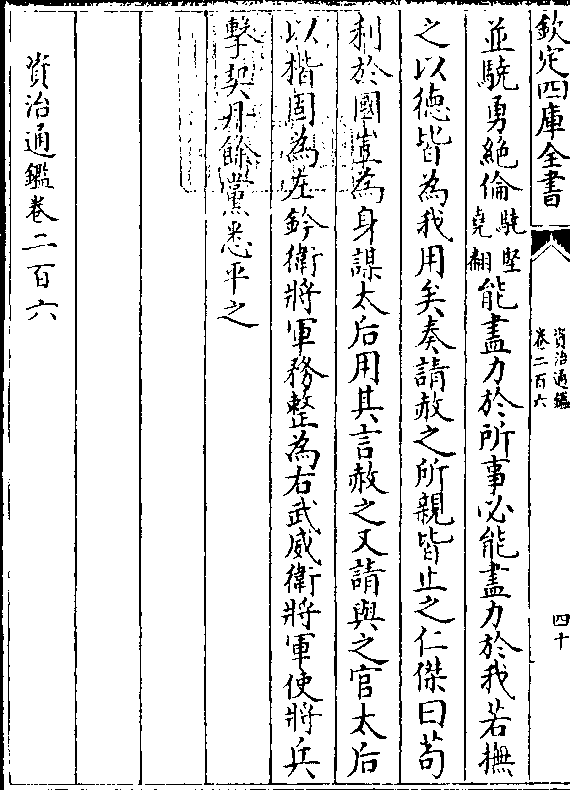 欽定四庫全書
資治通鑑
卷二百六
四十
並驍勇絶倫驍堅堯翻能盡力於所事必能盡力於我若撫
之以德皆為我用矣奏請赦之所親皆止之仁傑曰茍
利於國豈為身謀太后用其言赦之又請與之官太后
以楷固為左鈐衛將軍務整為右武威衛將軍使將兵
擊契丹餘黨悉平之
資治通鑑卷二百六